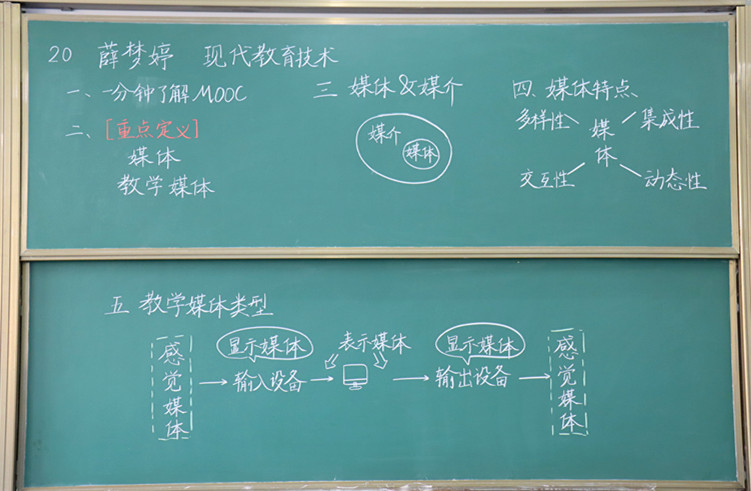 20 薛梦婷 现代教育技术
一、一分钟了解MOOC
二、[重点定义]
媒体
教学媒体
三 媒体&媒介
媒介
媒体
四 媒体特点
多样性
集成性
媒体
交互性
动态性
五 教学媒体类型
感觉媒体
显示媒体
输入设备
表示媒体
显示媒体
输出设备
感觉媒体